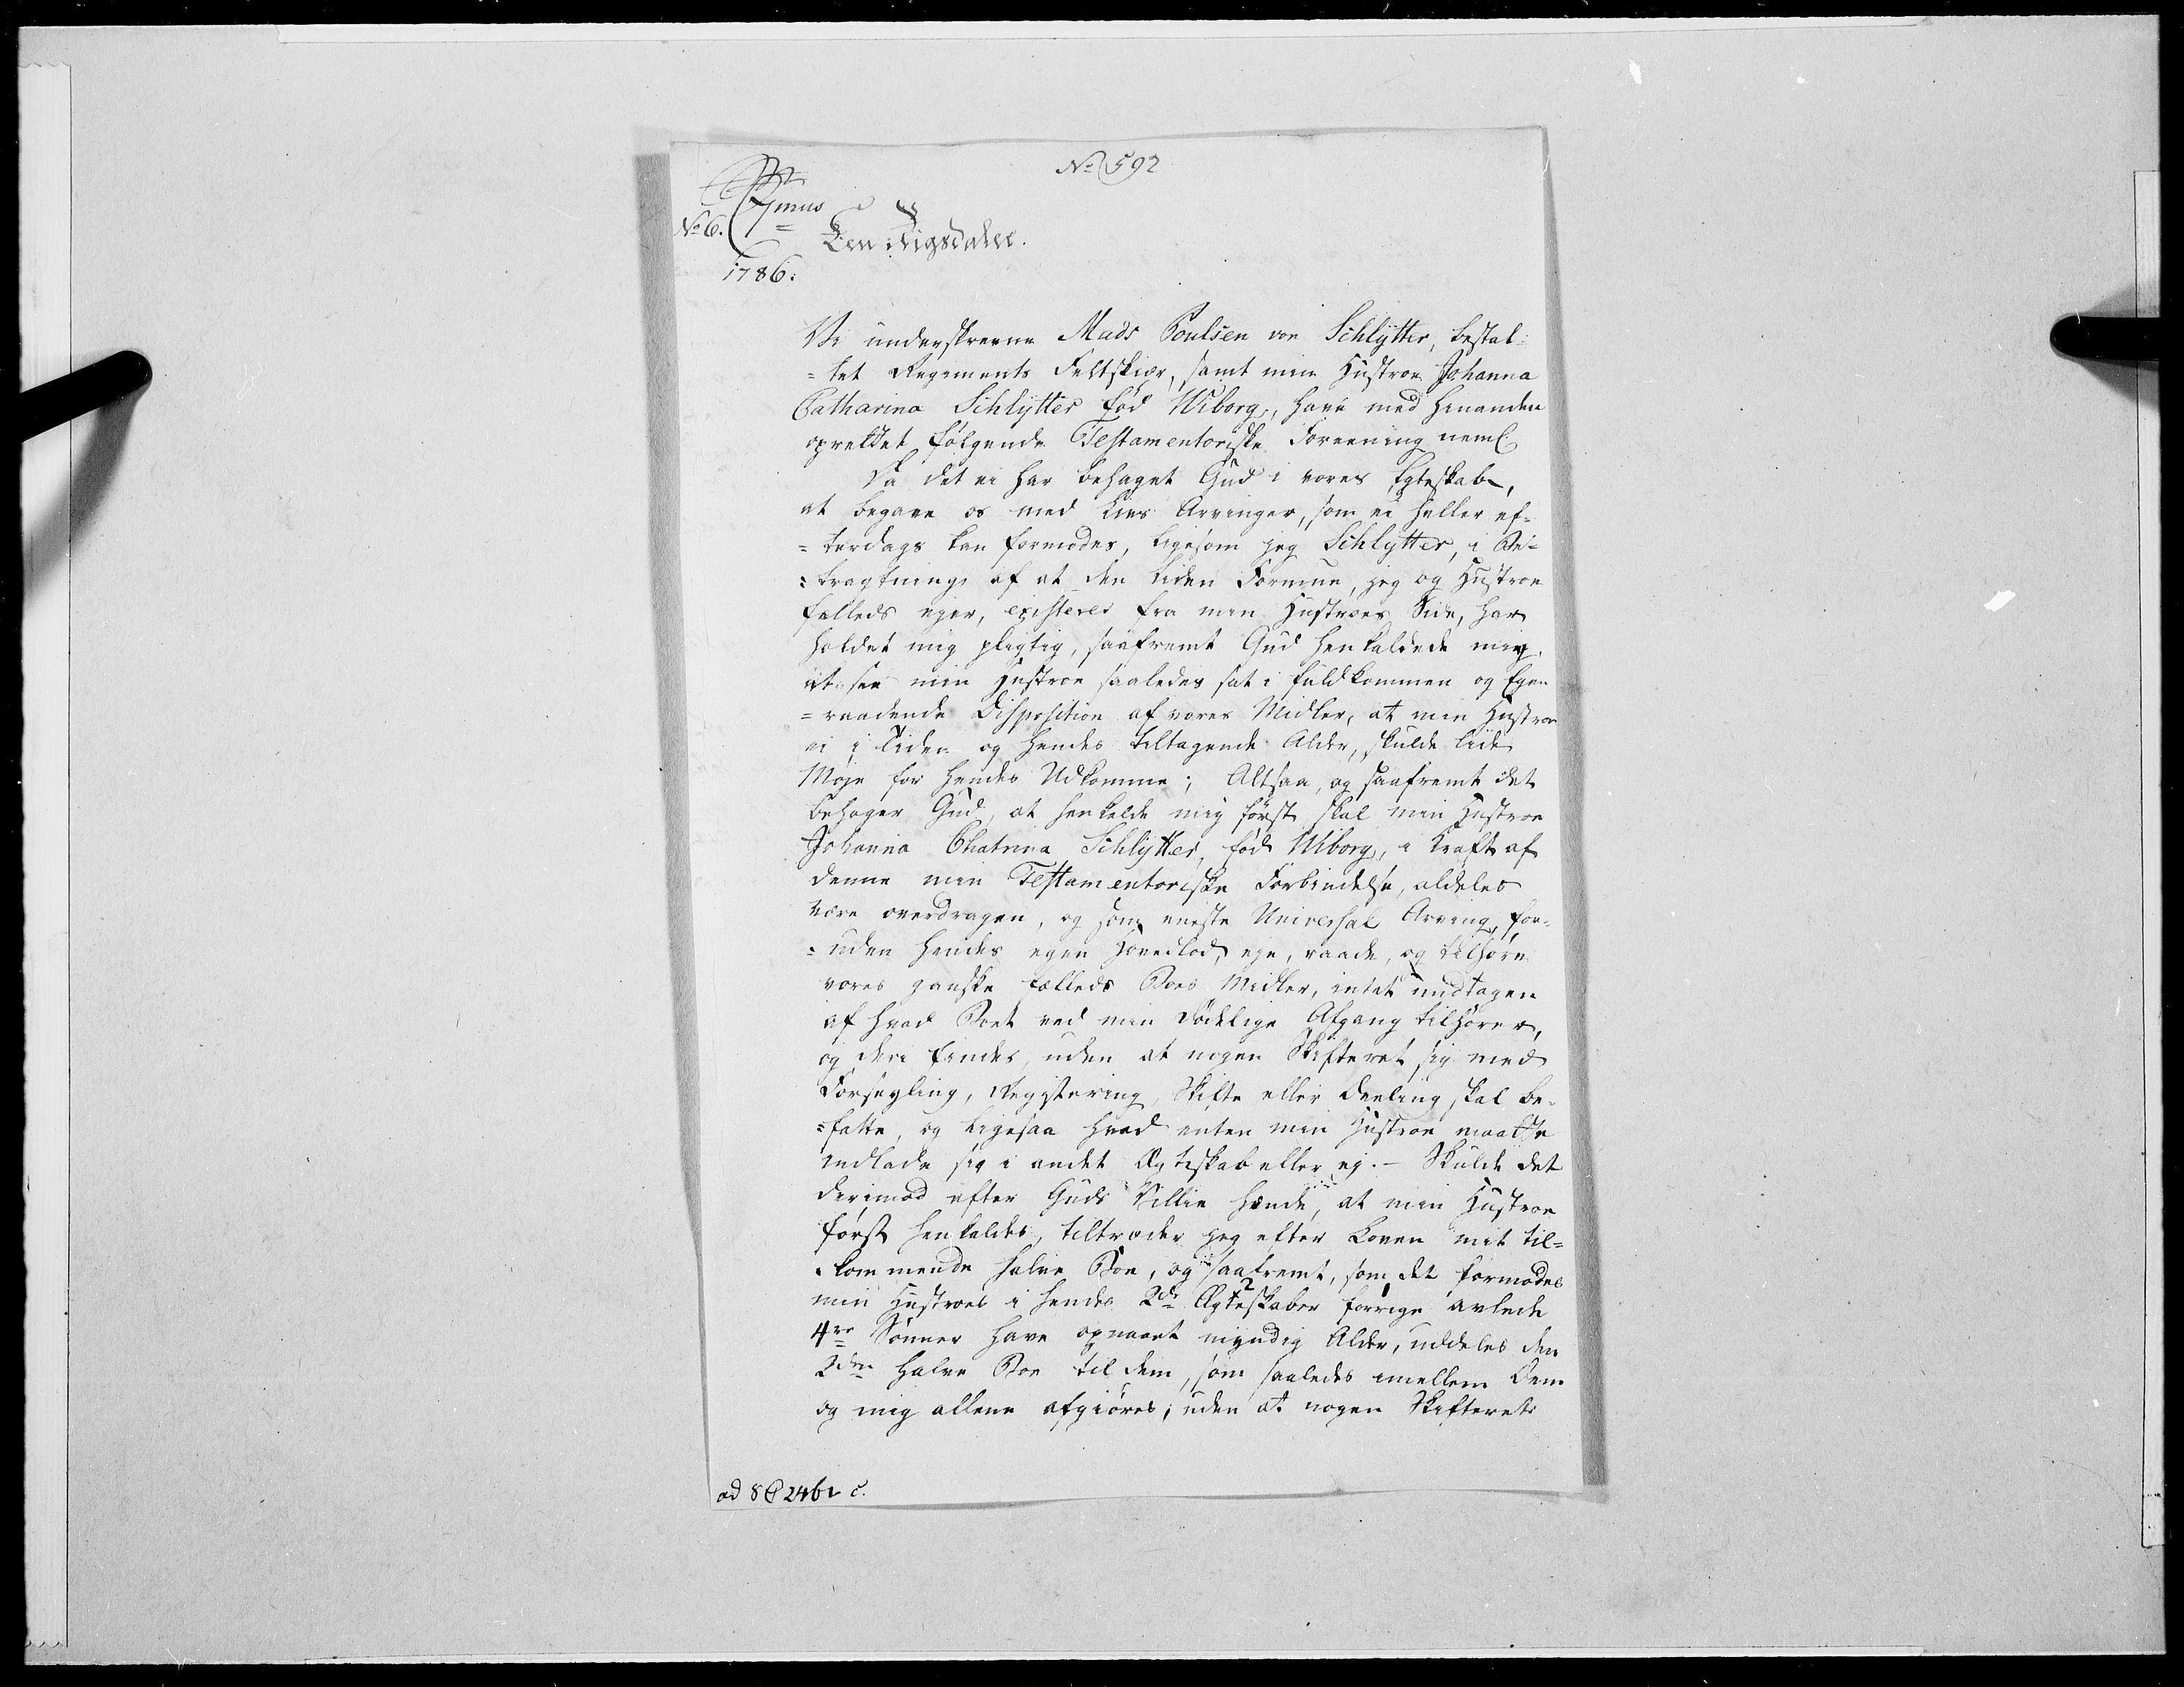 No 592
No 6. 7mus
Een Rigsdaler.
1786.
Vi underskrevne Mads Poulsen von Schlytter, bestal-
=let Regiments Feltskiær, samt min Hustroe Johanna
Catharina Schlytter fød Wiborg, have med hinanden
oprettet følgende Testamentoriske Foreening neml:
Da det ei har behaget Gud i vores Egteskab,
at begave os med Livs Arvinger, som ei heller ef-
=terdags kan formodes, ligesom jeg Schlytter, i Be-
=tragtning af at den liden Formue, jeg og Hustroe
fælleds ejer, existerer fra min Hustroes Side, har
holdet mig pligtig, saafremt Gud henkaldede mig,
at see min Hustroe saaledes sat i fuldkommen og Egen
=raadende Disposition af vores Midler, at min Hustroe
ei i Tiden og hendes tiltagende Alder, skulde lide
Møje for hendes Udkomme; Altsaa, og saafremt det
behager Gud, at henkalde mig først, skal min Hustroe
Johanna Chatrina Schlytter, fød Wiborg, i Kraft af
denne min Testamentoriske Forbindelse, aldeles
være overdragen, og som eneste Universal Arving, for-
=uden hendes egen Hovedlod, eje, raade, og tilhøre
vores ganske fælleds Boes Midler, intet undtagen
af hvad Boet ved min Dødelige Afgang tilhører,
og deri findes, uden at nogen Skifteret sig med
Forsegling, Registering, Skifte eller Deeling skal be-
=fatte, og ligesaa hvad enten min Hustroe maatte
indlade sig i andet Ægteskab eller ej. - Skulde det
derimod efter Guds Villie hænde, at min Hustroe
først henkaldes, tiltræder jeg efter Loven mit til-
=kommende halve Boe, og saafremt, som det formodes
min Hustroes i hendes 2de Ægteskaber forrige avlede
4re Sønner have opnaaet myndig Alder, uddeles den
2den halve Boe til dem, som saaledes imellem Dem
og mig allene afgiøres, uden at nogen Skifterets
ad 8 2461 c.